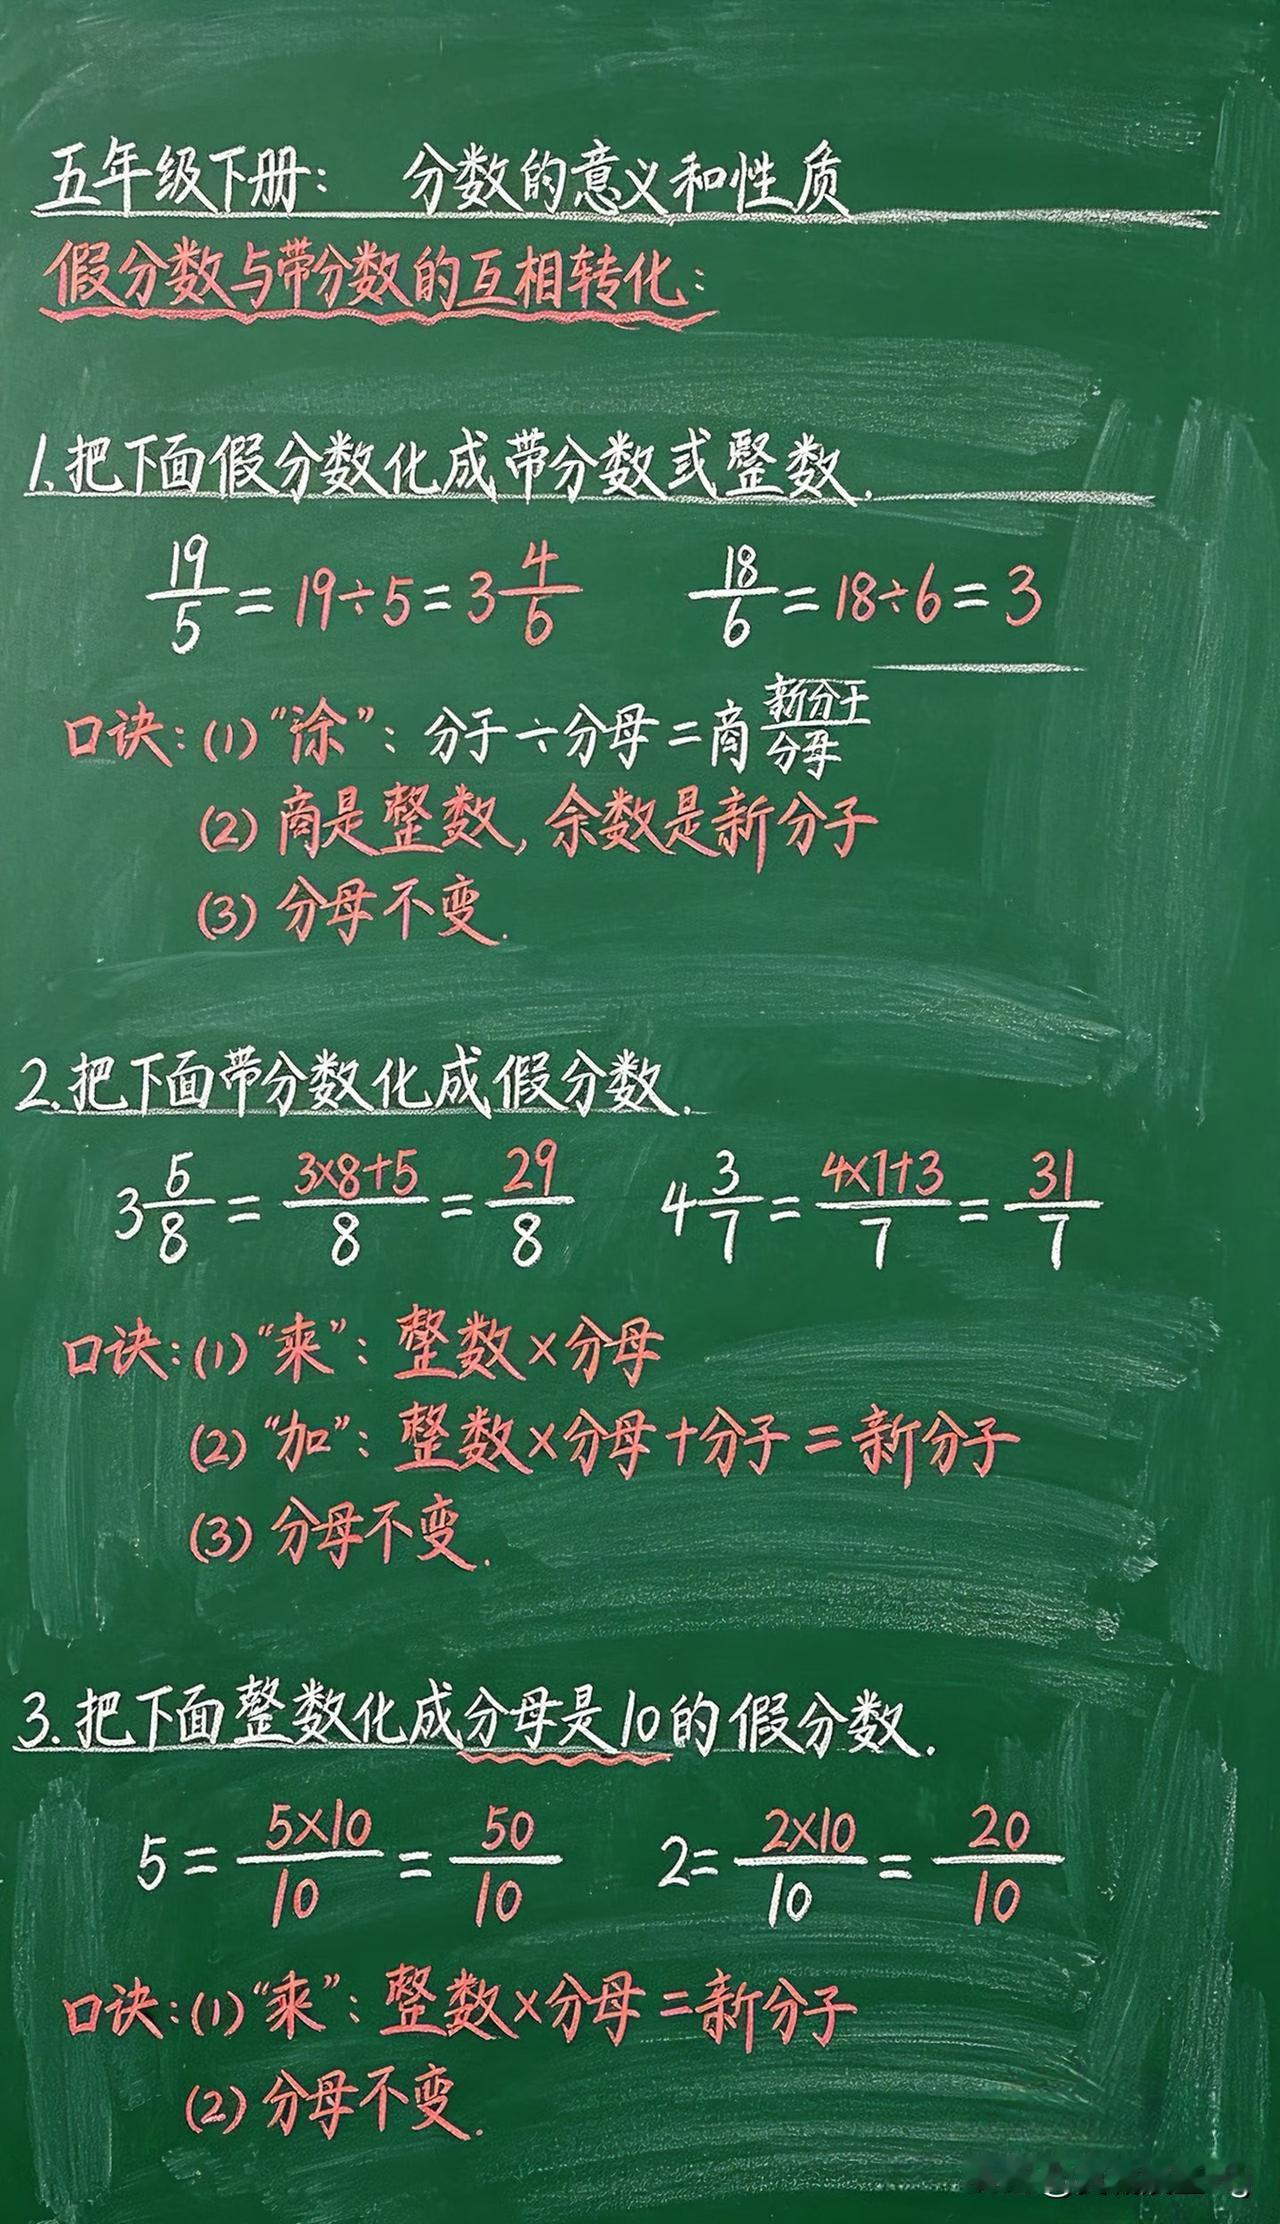 五年级下册： 分数的意义和性质
假分数与带分数的互相转化：
1.把下面假分数化成带分数式整数.
19/5=19÷5=3 4/6 18/6=18÷6=3
口诀：(1)“涂”：分于÷分母=商 新分于/分母
(2)商是整数,余数是新分子
(3)分母不变.
2.把下面带分数化成假分数.
3 5/8=3×8+5/8=29/8 4 3/7=4×1+3/7=31/7
口诀：(1)“来”：整数×分母
(2)“加”：整数×分母+分子=新分子
(3)分母不变.
3.把下面整数化成分母是10的假分数.
5=5×10/10=50/10 2=2×10/10=20/10
口诀：(1)“乘”：整数×分母=新分子
(2)分母不变.